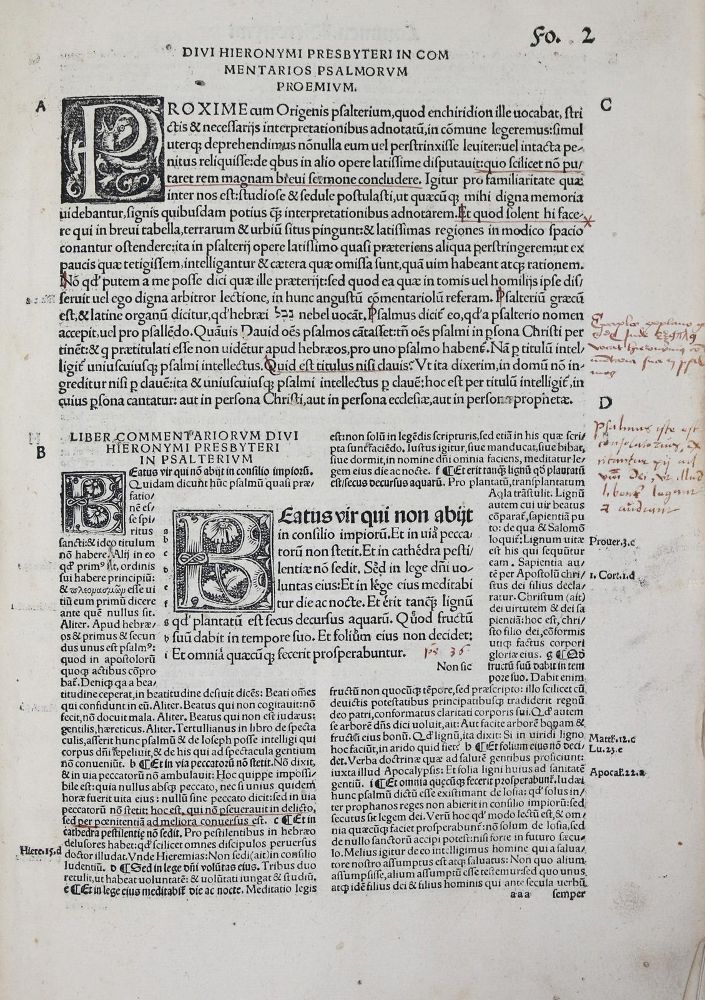 Fo. 2
DIVI HIERONYMI PRESBYTERI IN COM
MENTARIOS PSALMORVM
PROEMIVM.
A
C
PROXIME cum Origenis psalterium, quod enchiridion ille uocabat, stri
ctis & necessarijs interpretationibus adnotatũ, in cõmune legeremus: simul
uterq; deprehendimus nõnulla eum uel perstrinxisse leuiter: uel intacta pe-
nitus reliquisse: de qbus in alio opere latissime disputauit: quo scilicet nõ pu-
taret rem magnam breui sermone concludere. Igitur pro familiaritate quæ
inter nos est: studiose & sedule postulasti, ut quæcũq; mihi digna memoria
uidebantur, signis quibusdam potius q̃ interpretationibus adnotarem. Et quod solent hi face-
re qui in breui tabella, terrarum & urbiũ situs pingunt: & latissimas regiones in modico spacio
conantur ostendere: ita in psalterij opere latissimo quasi præteriens aliqua perstringerem: ut ex
paucis quæ tetigissem, intelligantur & cætera quæ omissa sunt, quã uim habeant atq; rationem.
Nõ qd' putem a me posse dici quæ ille præterijt: sed quod ea quæ in tomis uel homilijs ipse dis
seruit uel ego digna arbitror lectione, in hunc angustũ cõmentariolũ referam. Psalteriũ græcũ
est, & latine organũ dicitur, qd' hebræi נבל nebel uocãt, Psalmus dicit' eo, qd' a psalterio nomen
accepit. uel pro psallẽdo. Quãuis Dauid oẽs psalmos cãtasset: tñ oẽs psalmi in psona Christi per
tinẽt: & q prætitulati esse non uidẽtur apud hebræos, pro uno psalmo habent'. Nã p titulũ intel-
ligit' uniuscuiusq; psalmi intellectus. Quid est titulus nisi clauis? Vt ita dixerim, in domũ nõ in-
greditur nisi p clauẽ: ita & uniuscuiusq; psalmi intellectus p clauẽ: hoc est per titulũ intelligit', in
cuius psona cantatur: aut in persona Christi, aut in persona ecclesiæ, aut in persona prophetæ.
D
B
LIBER COMMENTARIORVM DIVI
HIERONYMI PRESBYTERI
IN PSALTERIVM
Beatus vir qui nõ abijt in consilio impiorũ.
Quidam dicunt hũc psalmũ quasi præ-
fatio-
nẽ es-
se spi
ritus
sancti: & ideo titulum
nõ habere. Alij in eo
qd' prim' sit, ordinis
sui habere principiũ:
tiũ eum primũ dicere
ante quẽ nullus sit.
Aliter. Apud hebræ-
os & primus & secun
dus unus est psalm':
quod in apostolorũ
quoq; actibus cõpro
bat'. Deniq; qa a bea-
titudine ceperat, in beatitudine desiuit dicẽs: Beati oẽs
qui confidunt in eũ. Aliter. Beatus qui non cogitauit: nõ
fecit, nõ docuit mala. Aliter. Beatus qui non est iudæus:
gentilis, hæreticus. Aliter. Tertullianus in libro de specta
culis, asserit hunc psalmũ & de Ioseph posse intelligi qui
corpus dñi sepeliuit, & de his qui ad spectacula gentium
nõ conueniũt. b ¶Et in via peccatorũ nõ stetit. Nõ dixit,
& in uia peccatorũ nõ ambulauit: Hoc quippe impossi-
bile est: quia nullus absq; peccato, nec si unius quidem
horæ fuerit uita eius: nullũ sine peccato dicit: sed in uia
peccatorũ nõ stetit: hoc est, qui nõ pseuerauit in delicto,
sed per pœnitentiã ad meliora conuersus est. c ¶Et in
cathedra pestilentie nõ sedit. Pro pestilentibus in hebræo
delusores habet: qd' scilicet omnes discipulos peruersus
doctor illudat. Vnde Hieremias: Non sedi (ait) in consilio
ludentiũ. D ¶Sed in lege dñi voluntas eius. Tribus duo
retulit, ut habeat uoluntatẽ: & uolũtati iungat & studiũ.
e ¶Et in lege eius meditabit' die ac nocte. Meditatio legis
Hiere.15.d
Beatus vir qui non abijt
in consilio impiorũ: Et in via pecca
torũ non stetit. Et in cathedra pesti
lentiæ nõ sedit. Sed in lege dñi vo-
luntas eius: Et in lege eius meditabi
tur die ac nocte. Et erit tanq̃ lignũ
qd' plantatũ est secus decursus aquarũ. Quod fructũ
suũ dabit in tempore suo. Et folium eius non decidet:
Et omnia quæcũq; fecerit prosperabuntur.
Non sic
est: non solũ in legẽdis scripturis, sed etiã in his quæ scri
pta sunt faciẽdo. Iustus igitur, siue manducat, siue bibat,
siue dormit, in nomine dñi omnia faciens, meditatur le-
gem eius die ac nocte. f ¶Et erit tanq̃ lignũ qd plantatũ
est secus decursus aquarũ. Pro plantatũ, transplantatum
Aqla trãstulit. Lignũ
autem cui uir beatus
cõparat', sapientiã pu
to: de qua & Salomõ
loquit': Lignum uitæ
est his qui sequũtur
eam. Sapientia au-
tẽ per Apostolũ chri
sti dei filius decla-
ratur. Christum (ait)
dei uirtutem & dei sa
pientiã: hoc est, chri-
sto filio dei, cõformis
utiq; factus corpori
gloriæ eius. g ¶Qd
fructũ suũ dabit in tem
pore suo. Dabit enim
fructũ non quocũq; tẽpore, sed præscripto: illo scilicet cũ
deuictis potestatibus principatibusq; tradiderit regnũ
deo patri, conformatus claritati corporis sui. Qd' autem
arbore dñs dici uoluit, ait: Aut facite arborẽ bonam &
fructũ eius bonũ. Qd' lignũ, ita dixit: Si in uiridi ligno
hoc faciũt, in arido quid fiet? h ¶Et folium eius nõ deci
det. Verba doctrinæ quæ ad salutẽ gentibus proficiunt:
iuxta illud Apocalypsis: Et folia ligni huius ad sanitatẽ
gentiũ. i ¶Et omnia quecũq; faciet prosperabunt'. Qui
hunc psalmũ dictũ esse existimant de Iosia: qd' solus in-
ter prophanos reges non abierit in consilio impiorũ: sed
secutus sit legem dei. Verũ hoc qd' modo lectũ est, & om
nia quæcũq; faciet prosperabunt': nõ solum de Iosia, sed
de nullo sanctorũ accipi potest: nisi forte in futuro sæcu-
lo. Melius igitur de eo intelligimus homine qui a salua/
tore nostro assumptus est atq; saluatus: Non quo alium
assumpsisse, alium assumptũ esse testemur: sed quo unus
atq; idẽ filius dei & filius hominis qui ante secula uerbũ
aaa
semper
Prouer.3.c
1. Cort.1.d
Matt.12.c
Lu.23.e
Apocal.22.a